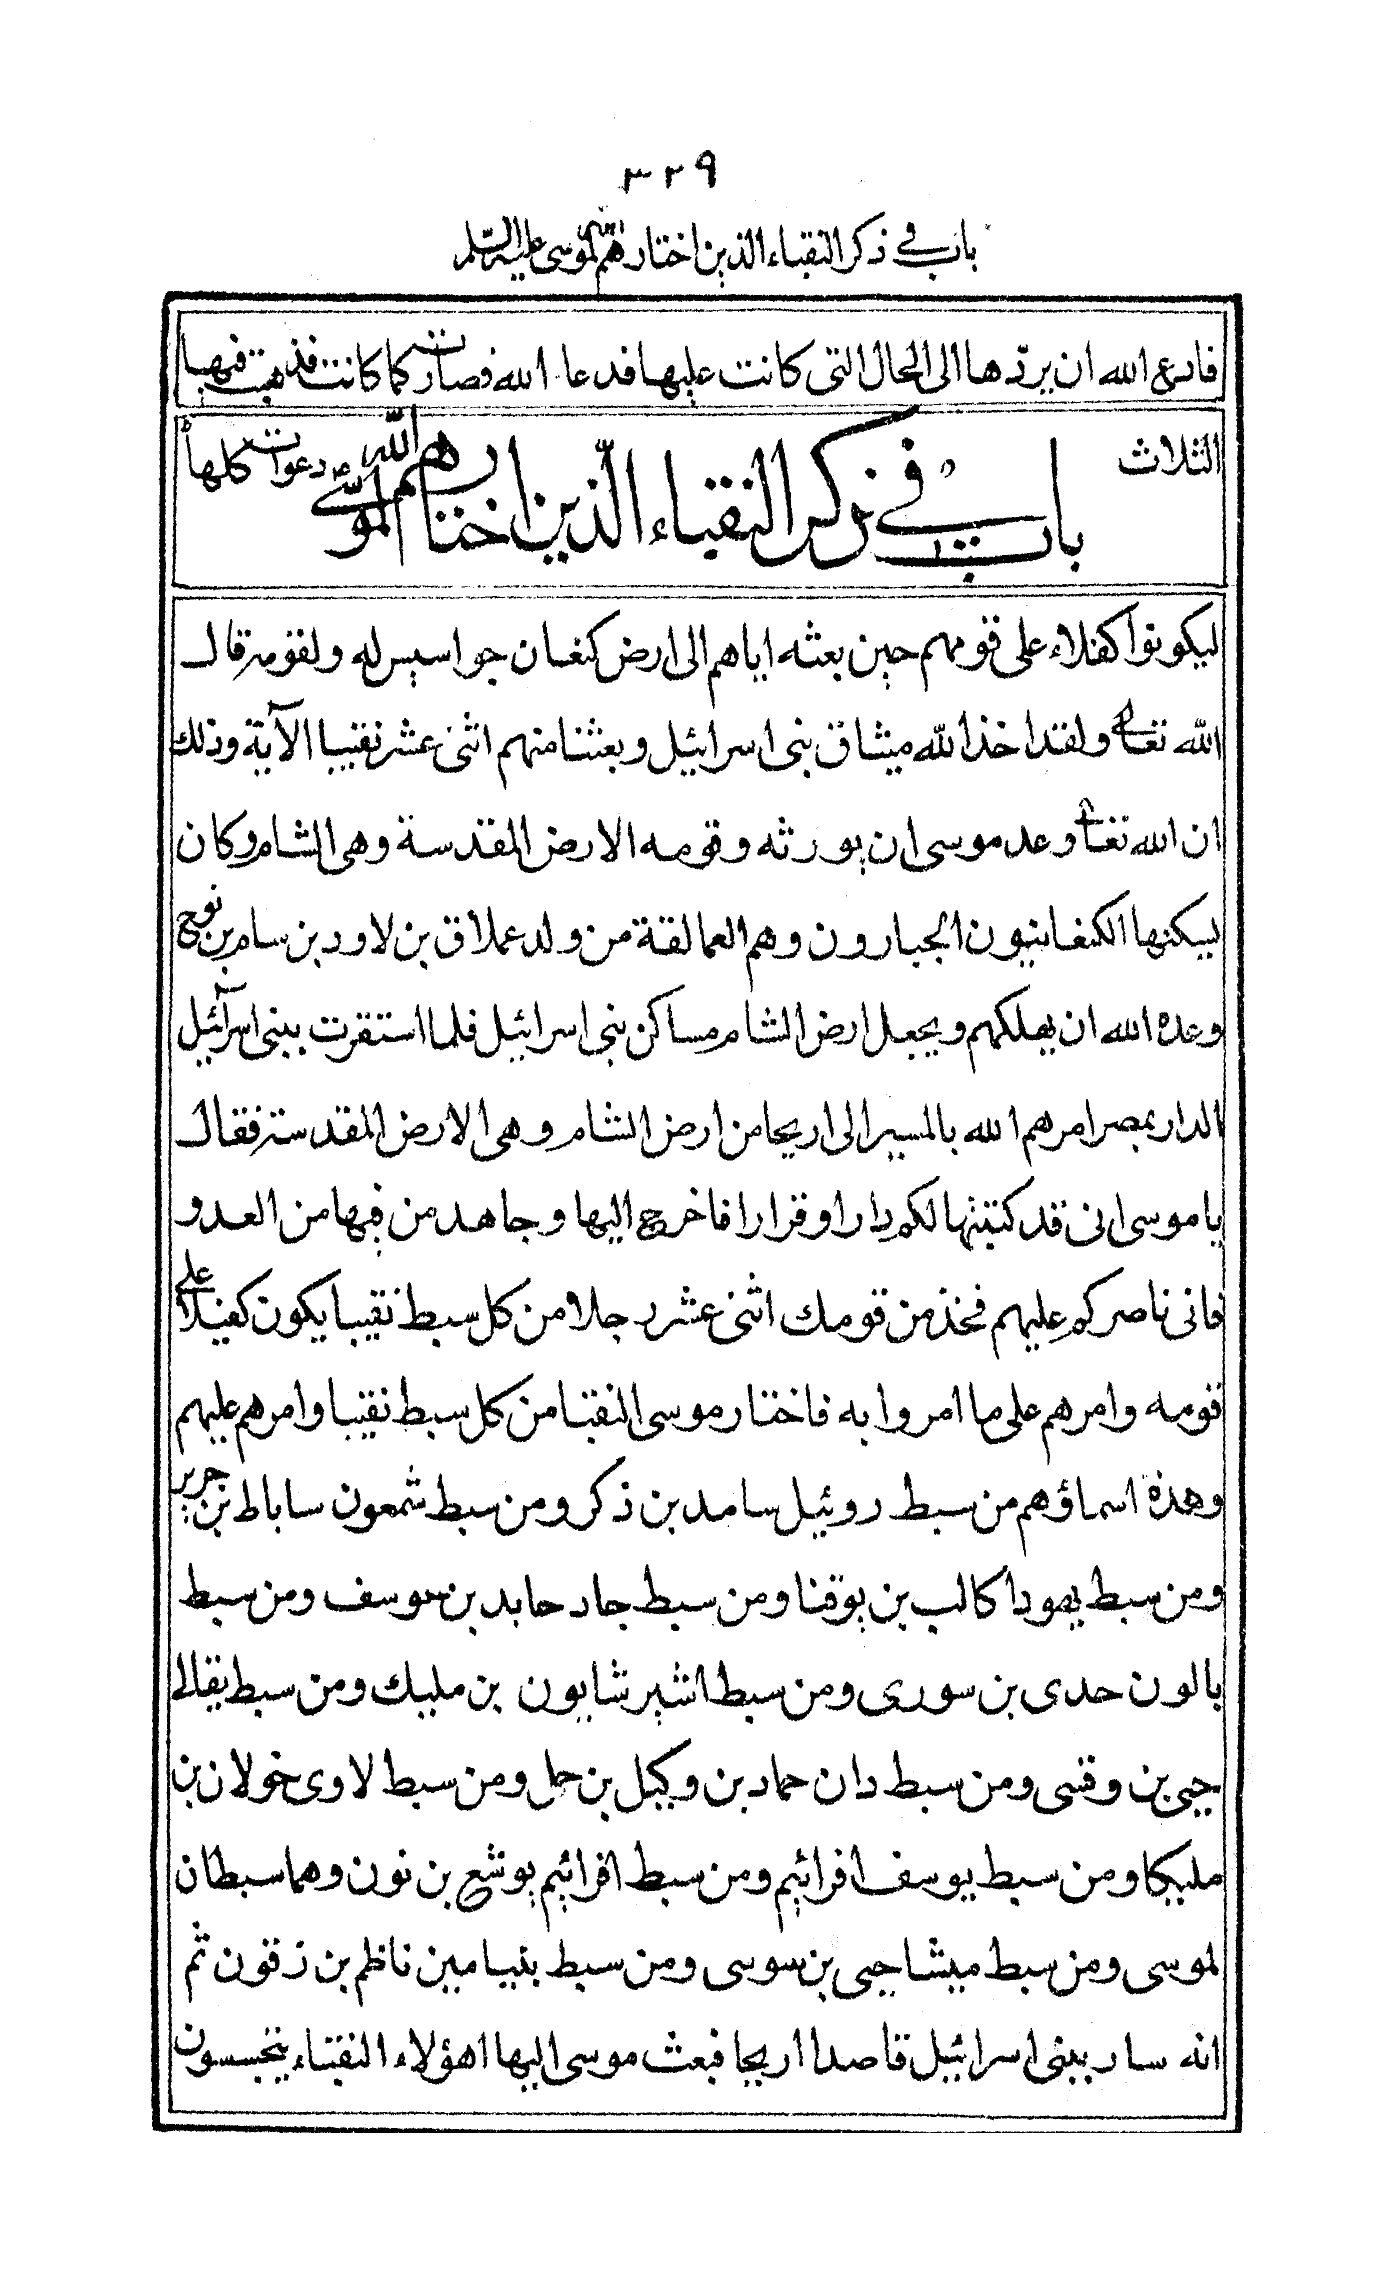 ٣٢٩
باب في ذكر النقباء الذين اختارهم الله لموسى عليه السلم
فادع الله ان يردّها الى الحال التى كانت عليها فدعا الله فصارت كما كانت فذهبت فيها
الثلاث دعوات كلها
باب في ذكر النقباء الذين اختارهم الله لموسى
ليكونوا كفلاء على قومهم حين بعثه اياهم الى ارض كنعان جواسيس له ولقومه قال
الله تعالى ولقد اخذ الله ميثاق بنى اسرائيل وبعثنا منهم اثنى عشر نقيبا الآية وذلك
ان الله تعالى وعد موسى ان يورثه وقومه الارض المقدسة وهى الشام وكان
يسكنها الكنعانيون الجبارون وهم العمالقة من ولد عملاق بن لاود بن سام بن نوح
وعده الله ان يهلكهم ويجعل ارض الشام مساكن بنى اسرائيل فلما استقرت ببنى اسرآئيل
الدار بمصر امرهم الله بالمسير الى اريحا من ارض الشام وهى الارض المقدسة فقال
يا موسى انى قد كتبتها لكم دارا وقرارا فاخرج اليها وجاهد من فيها من العدو
فانى ناصركم عليهم فخذ من قومك اثنى عشر رجلا من كل سبط نقيبا يكون كفيلا على
قومه وامرهم على ما امروا به فاختار موسى النقبا من كل سبط نقيبا وامرهم عليهم
وهذه اسماؤهم من سبط روئيل سامد بن ذكر ومن سبط شمعون ساباط بن حرير
ومن سبط يهودا كالب بن يوقنا ومن سبط جاد حابد بن سوسف ومن سبط
بالون حدى بن سورى ومن سبط اشير شايون بن مليك ومن سبط يقالى
حيى بن وقسى ومن سبط دان حماد بن وكيل بن حمل ومن سبط لاوى خولان بن
مليكا ومن سبط يوسف افرائيم ومن سبط افرائيم يوشع بن نون وهما سبطان
لموسى ومن سبط ميشا حيى بن سوسى ومن سبط بنيامين ناظم بن زقون ثم
انه سار ببنى اسرائيل قاصدا اريحا فبعث موسى اليها اهؤلاء النقباء يتجسسون